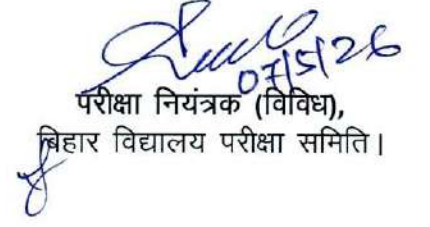 07/5/26
परीक्षा नियंत्रक (विविध),
बिहार विद्यालय परीक्षा समिति।